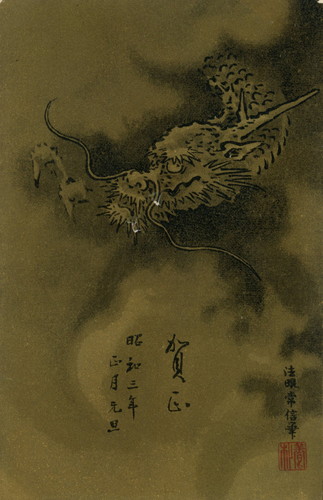 賀正
昭和三年
正月元旦
法眼常信筆